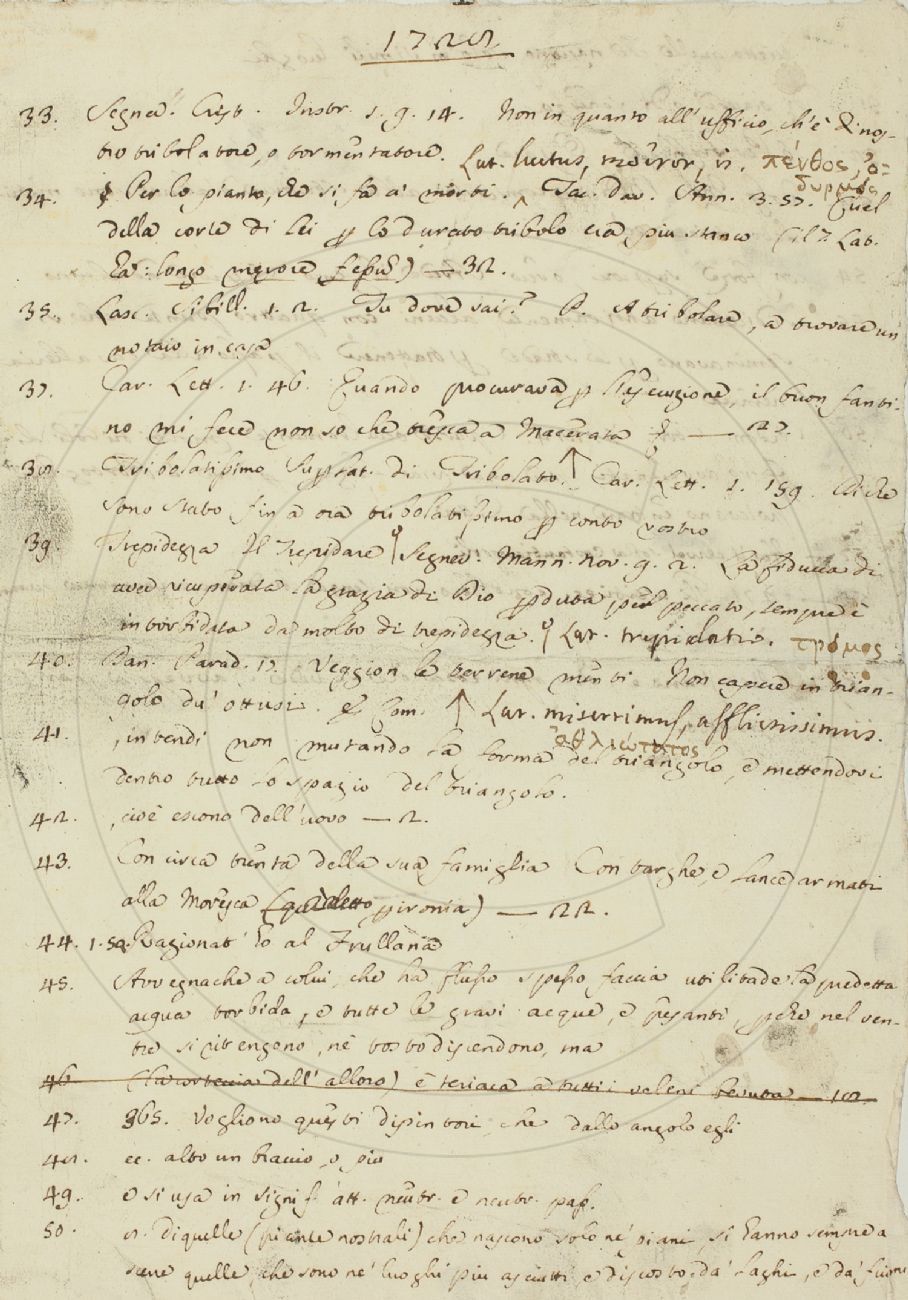 1728
33. Segner. Crist. Instr. 1. 9. 14. Non in quanto all'ufficio, ch'è di nos-
tro tribolatore, o tormentatore. Lat. luctus, moeror, is. πένθος, ὀ-
δυρμός
34. Per lo pianto, che si fa a' morti. Tac. Dav. Ann. 3. 57. Quel
della corte di lei p lo durato tribolo era più stanco (il T. Lat.
ha: longo mœrore fessum) — 32.
35. Lasc. Sibill. 1. 2. Tu dove vai? P. A tribolare, a trovare un
notaio in casa
37. Car. Lett. 1. 46. Quando procurava p l'esecuzione, il buon fanti-
no mi fece non so che tresca a Macerata — 27.
38. Tribolatissimo Superlat. di Tribolato. Car. Lett. 1. 159. Anche
sono stato fin a ora tribolatissimo p conto vostro
39. Trepidezza Il Trepidare Segner. Mann. Nov. 9. 2. La fiducia di
aver ricuperata la grazia di Dio pduta pel peccato, sempre è
intorbidata da molto di trepidezza. Lat. trepidatio. τρόμος
40. Dan. Parad. 17. Veggion le terrene menti Non capere in trian-
golo du' ottusi. Com. Lat. miserrimus, afflictissimus.
ἀθλιώτατος
41. , intendi non mutando la forma del triangolo, e mettendovi
dentro tutto lo spazio del triangolo.
42. , cioè escono dell'uovo — 2.
43. Con circa trenta della sua famiglia Con targhe, e lance armati
alla Moresca (qui detto p ironia) — 22.
44. 1. 50. Ragionat' ho al Frullana
45. Avvegnachè a colui, che ha flusso spesso faccia utilitade la predetta
acqua torbida, e tutte le gravi acque, e pesanti, pchè nel ven-
tre si ritengono, nè tosto discendono, ma
46. (La corteccia dell'alloro) è teriaca a tutti i veleni bevuta — 102.
47. 365. Vogliono questi dipintori, che dallo angolo egli
48. ec. alto un braccio, o più
49. e si usa in signif. att. neutr. e neutr. pass.
50. 8. di quelle (piante nostrali) che nascono solo ne' piani, si hanno sempre a
scerre quelle, che sono ne' luoghi più asciutti e discosto da' laghi, e da' fiumi